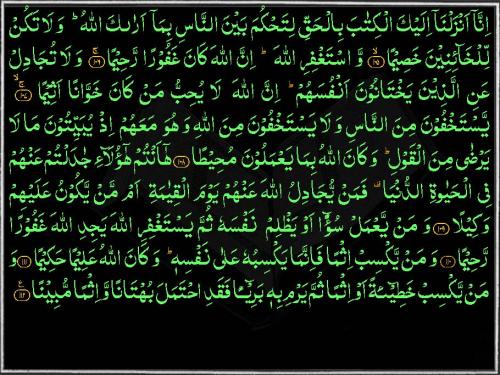 اِنَّاۤ اَنْزَلْنَاۤ اِلَيْكَ الْكِتٰبَ بِالْحَقِّ لِتَحْكُمَ بَيْنَ النَّاسِ بِمَاۤ اَرٰىكَ اللّٰهُ ؕ وَ لَا تَكُنْ
لِّلْخَآئِنِيْنَ خَصِيْمًا ۙ﴿۱۰۵﴾ وَّ اسْتَغْفِرِ اللّٰهَ ؕ اِنَّ اللّٰهَ كَانَ غَفُوْرًا رَّحِيْمًا ۚ﴿۱۰۶﴾ وَ لَا تُجَادِلْ
عَنِ الَّذِيْنَ يَخْتَانُوْنَ اَنْفُسَهُمْ ؕ اِنَّ اللّٰهَ لَا يُحِبُّ مَنْ كَانَ خَوَّانًا اَثِيْمًا ۚۙ﴿۱۰۷﴾
يَّسْتَخْفُوْنَ مِنَ النَّاسِ وَ لَا يَسْتَخْفُوْنَ مِنَ اللّٰهِ وَ هُوَ مَعَهُمْ اِذْ يُبَيِّتُوْنَ مَا لَا
يَرْضٰى مِنَ الْقَوْلِ ؕ وَ كَانَ اللّٰهُ بِمَا يَعْمَلُوْنَ مُحِيْطًا ﴿۱۰۸﴾ هٰۤاَنْتُمْ هٰۤؤُلَآءِ جٰدَلْتُمْ عَنْهُمْ
فِى الْحَيٰوةِ الدُّنْيَا ۟ فَمَنْ يُّجَادِلُ اللّٰهَ عَنْهُمْ يَوْمَ الْقِيٰمَةِ اَمْ مَّنْ يَّكُوْنُ عَلَيْهِمْ
وَكِيْلًا ﴿۱۰۹﴾ وَ مَنْ يَّعْمَلْ سُوْٓءًا اَوْ يَظْلِمْ نَفْسَهٗ ثُمَّ يَسْتَغْفِرِ اللّٰهَ يَجِدِ اللّٰهَ غَفُوْرًا
رَّحِيْمًا ﴿۱۱۰﴾ وَ مَنْ يَّكْسِبْ اِثْمًا فَاِنَّمَا يَكْسِبُهٗ عَلٰى نَفْسِهٖ ؕ وَ كَانَ اللّٰهُ عَلِيْمًا حَكِيْمًا ﴿۱۱۱﴾ وَ
مَنْ يَّكْسِبْ خَطِيْٓئَةً اَوْ اِثْمًا ثُمَّ يَرْمِ بِهٖ بَرِيْٓئًا فَقَدِ احْتَمَلَ بُهْتَانًا وَّ اِثْمًا مُّبِيْنًا ﴿۱۱۲﴾